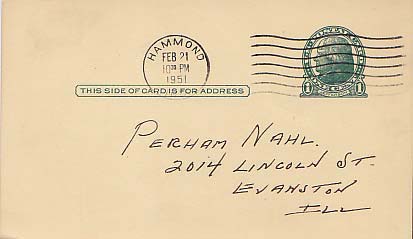 HAMMOND
FEB 21
10 30 PM
1951
THIS SIDE OF CARD IS FOR ADDRESS
1 1
PERHAM NAHL.
2014 LINCOLN ST.
EVANSTON
ILL